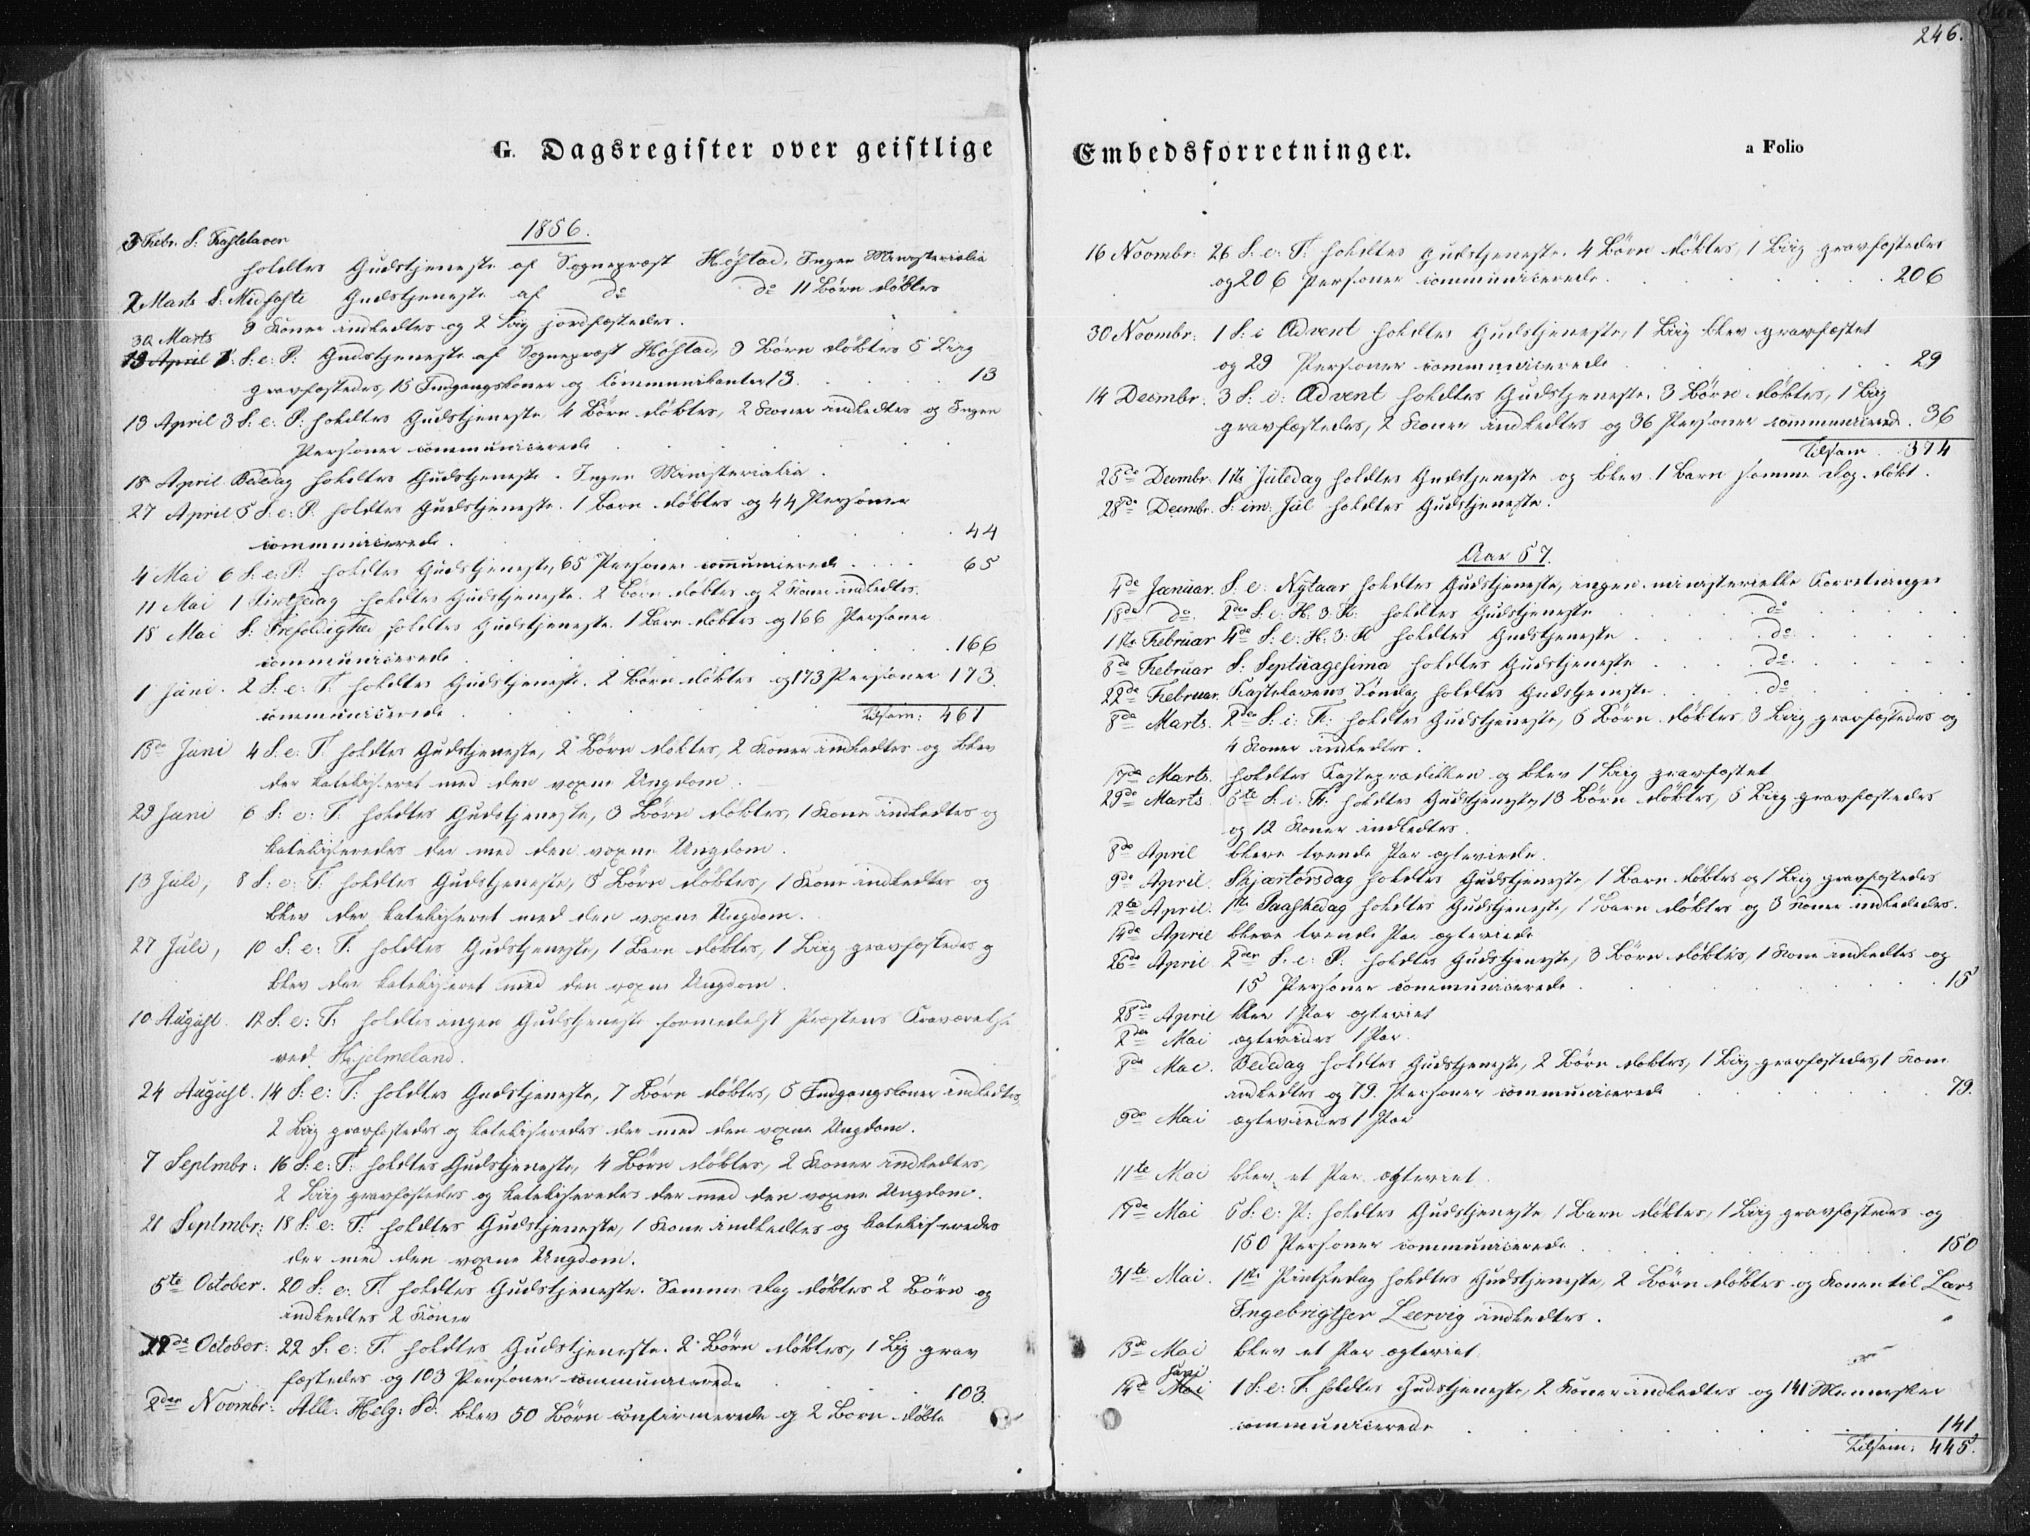 246.
G. Dagsregister over geistlige
Embedsforretninger.
a Folio
1856.
3 Febr. S. Fastelaven
holdtes Gudstjeneste af Sognepræst Høstad. Ingen Ministerialia
2 Marts S. Midfaste Gudstjeneste af do do 11 Børn døbtes
9 Koner indledtes og 2 Liig jordfæstedes.
30 Marts
13 April 1 S. e. P. Gudstjeneste af Sognepræst Høstad, 3 Børn døbtes 5 Liig
gravfæstedes, 15 Indgangskoner og Communikanter 13. 13
13 April 3 S. e. P. holdtes Gudstjeneste 4 Børn døbtes, 2 Koner indledtes og Ingen
Personer communicerede
18 April Bededag holdtes Gudstjeneste. Ingen Ministerialia.
27 April 5 S. e. P. holdtes Gudstjeneste. 1 Barn døbtes og 44 Personer
communicerede. 44
4 Mai 6 S. e. P. holdtes Gudstjeneste, 65 Personer communicerede 65
11 Mai 1 Pintsedag holdtes Gudstjeneste. 2 Børn døbtes og 2 Koner indledtes.
18 Mai S. Trefoldighed holdtes Gudstjeneste. 1 Barn døbtes og 166 Personer
communicerede 166
1 Juni. 2 S. e. T. holdtes Gudstjeneste. 2 Børn døbtes og 173 Personer 173.
communicerede. Tilsam: 461
15de Juni 4 S. e. T. holdtes Gudstjeneste, 2 Børn døbtes, 2 Koner indledtes og blev
der katekiseret med den voxne Ungdom.
29 Juni 6 S. e. T. holdtes Gudstjeneste, 3 Børn døbtes, 1 Kone indledtes og
katekiseredes der med den voxne Ungdom.
13 Juli, 8 S. e. T. holdtes Gudstjeneste, 5 Børn døbtes, 1 Kone indledtes og
blev der katekiseret med den voxne Ungdom.
27 Juli, 10 S. e. T. holdtes Gudstjeneste, 1 Barn døbtes, 1 Liig gravfæstedes og
blev der katekiseret med den voxne Ungdom.
10 August. 12 S. e. T. holdtes ingen Gudstjeneste formedelst Præstens Fraværelse
ved Hjelmeland.
24 August. 14 S. e. T. holdtes Gudstjeneste, 7 Børn døbtes, 5 Indgangskoner indledtes,
2 Liig gravfæstedes og katekiseredes der med den voxne Ungdom.
7 Septmbr: 16 S. e. T. holdtes Gudstjeneste, 4 Børn døbtes, 2 Koner indledtes,
2 Liig gravfæstedes og katekiseredes der med den voxne Ungdom.
21 Septmbr: 18 S. e. T. holdtes Gudstjeneste, 1 Kone indledtes og katekiseredes
der med den voxne Ungdom.
5te October. 20 S. e. T. holdtes Gudstjeneste. Samme Dag døbtes 2 Børn og
indledtes 2 Koner
19de October: 22 S. e. T. holdtes Gudstjeneste. 2 Børn døbtes, 1 Lig grav
fæstedes og 103 Personer communicerede 103.
2den Novmbr: Alle Helg: Sd. blev 50 Børn confirmerede og 2 Børn døbte
16 Novmbr: 26 S. e. T. holdtes Gudstjeneste. 4 Børn døbtes, 1 Liig gravfæstedes
og 206 Personer communicerede. 206
30 Novmbr: 1 S. i Advent holdtes Gudstjeneste, 1 Liig blev gravfæstet
og 29 Personer communicerede 29
14 Decmbr. 3 S. i Advent holdtes Gudstjeneste. 3 Børn døbtes, 1 Liig
gravfæstedes, 2 Koner indledtes og 36 Personer communicered. 36
Tilsam. 374
25de Decmbr. 1ste Juledag holdtes Gudstjeneste og blev 1 Barn samme Dag døbt.
28de Decmbr. S. im: Jul holdtes Gudstjeneste.
Aar 57.
4de Januar. S. e. Nytaar holdtes Gudstjeneste, ingen ministerielle Forretninger
18de do. 2den S. e. H. 3. K. holdtes Gudstjeneste do
1ste Februar 4de S. e. H. 3. K holdtes Gudstjeneste do
8de Februar S. Septuagesima holdtes Gudstjeneste do
22de Februar. Fastelavens Søndag holdtes Gudstjeneste do
8de Marts. 2den S. i. F. holdtes Gudstjeneste, 5 Børn døbtes, 3 Liig gravfæstedes og
4 Koner indledtes.
17de Marts. holdtes Fasteprædiken og blev 1 Liig gravfæstet
29de Marts. 5te S. i. F. holdtes Gudstjeneste, 13 Børn døbtes, 5 Liig gravfæstedes
og 12 Koner indledtes.
8de April bleve tvende Par ægteviede.
9de April. Skjærtorsdag holdtes Gudstjeneste, 1 Barn døbtes og 1 Liig gravfæstedes
12te April. 1ste Paaskedag holdtes Gudstjeneste, 1 Barn døbtes og 3 Koner indlededes.
14de April bleve tvende Par ægteviede
26de April 2den S. e. P. holdtes Gudstjeneste, 3 Børn døbtes, 1 Kone indledtes og
15 Personer communicerede 15
28de April blev 1 Par ægteviet
2den Mai ægteviedes 1 Par.
8de Mai. Bededag holdtes Gudstjeneste, 2 Børn døbtes, 1 Liig gravfæstedes, 1 Kone
indledtes og 79. Personer communicerede 79.
9de Mai ægteviedes 1 Par
11te Mai blev et Par ægteviet.
17de Mai 5 S. e. P. holdtes Gudstjeneste 1 Barn døbtes, 1 Liig gravfæstedes og
150 Personer communicerede 150
31te Mai. 1ste Pintsedag holdtes Gudstjeneste, 2 Børn døbtes og Konen til Lars
Ingebrigtsen Leervig indledtes.
13de Mai blev et Par ægteviet
Juni
14de Mai 1 S. e. T. holdtes Gudstjeneste, 2 Koner indledtes og 141 Mennesker
communicerede 141
Tilsam: 445.